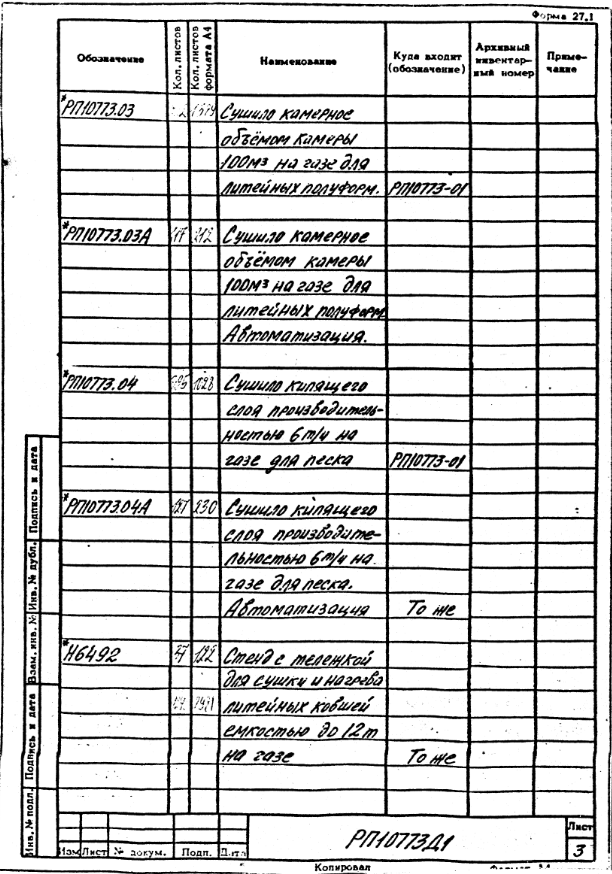 Форма 27.1
Обозначение Кол. листов Кол. листов формата А4 Наименование Куда входит (обозначение) Архивный инвентарный номер Примечание
*РП10773.03 Сушило камерное
объёмом камеры
100м³ на газе для
литейных полуформ. РП10773-01
*РП10773.03А 212 Сушило камерное
объёмом камеры
100м³ на газе для
литейных полуформ
Автоматизация.
*РП10773.04 1028 Сушило кипящего
слоя производитель-
ностью 6 т/ч на
газе для песка РП10773-01
*РП10773.04А 230 Сушило кипящего
слоя производите-
льностью 6 т/ч на
газе для песка.
Автоматизация То же
*Н6492 122 Стенд с тележкой
для сушки и нагрева
литейных ковшей
емкостью до 12 т
на газе То же
Инв. № подл. Подпись и дата Взам. инв. № Инв. № дубл. Подпись и дата
Изм Лист № докум. Подп. Дата
РП10773Д1
Лист
3
Копировал